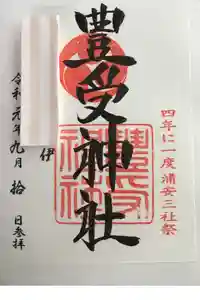 四年に一度浦安三社祭
豊受神社
伊
令和元年九月拾日参拝